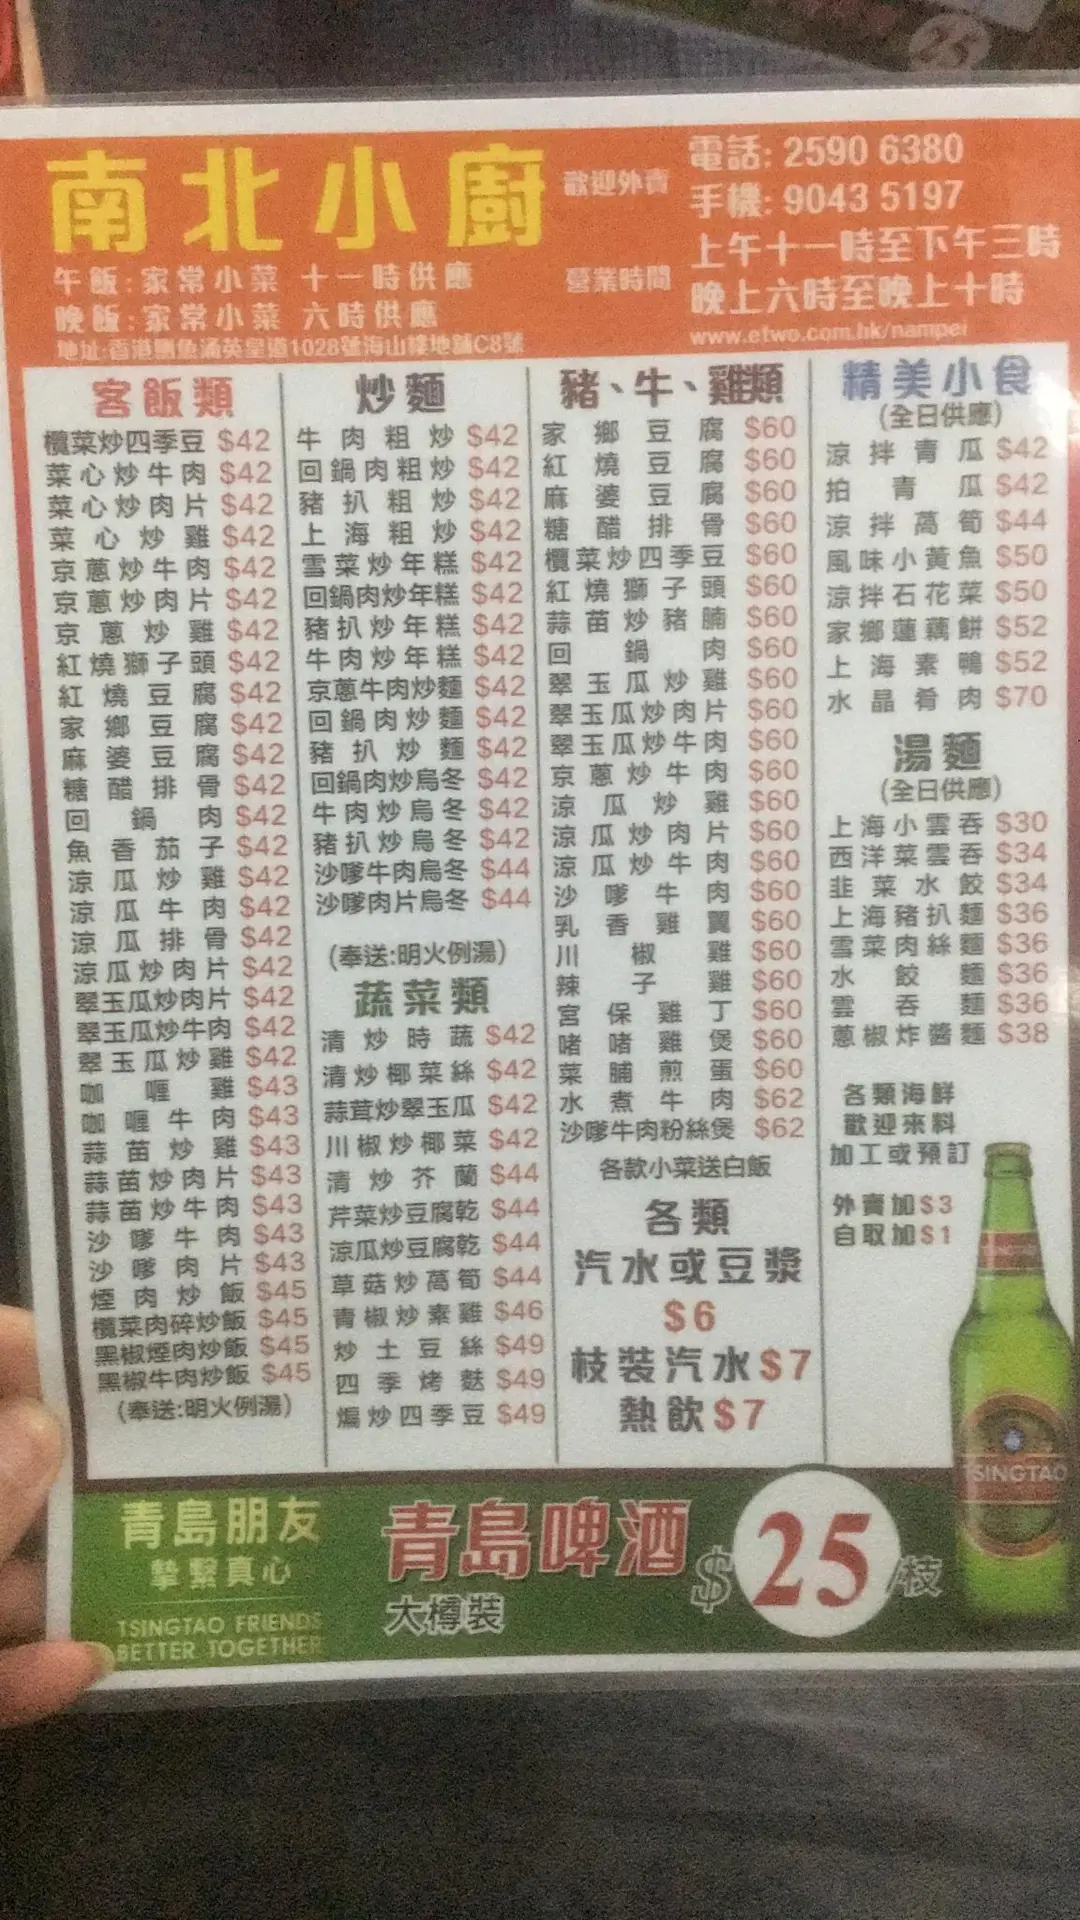 南北小廚
歡迎外賣
電話: 2590 6380
手機: 9043 5197
午飯:家常小菜 十一時供應
晚飯:家常小菜 六時供應
地址:香港鰂魚涌英皇道1028號海山樓地舖C8號
營業時間
上午十一時至下午三時
晚上六時至晚上十時
www.etwo.com.hk/nampei
客飯類
欖菜炒四季豆 $42
菜心炒牛肉 $42
菜心炒肉片 $42
菜心炒雞 $42
京蔥炒牛肉 $42
京蔥炒肉片 $42
京蔥炒雞 $42
紅燒獅子頭 $42
紅燒豆腐 $42
家鄉豆腐 $42
麻婆豆腐 $42
糖醋排骨 $42
回鍋肉 $42
魚香茄子 $42
涼瓜炒雞 $42
涼瓜牛肉 $42
涼瓜排骨 $42
涼瓜炒肉片 $42
翠玉瓜炒肉片 $42
翠玉瓜炒牛肉 $42
翠玉瓜炒雞 $42
咖喱雞 $43
咖喱牛肉 $43
蒜苗炒雞 $43
蒜苗炒肉片 $43
蒜苗炒牛肉 $43
沙嗲牛肉 $43
沙嗲肉片 $43
煙肉炒飯 $45
欖菜肉碎炒飯 $45
黑椒煙肉炒飯 $45
黑椒牛肉炒飯 $45
(奉送:明火例湯)
炒麵
牛肉粗炒 $42
回鍋肉粗炒 $42
豬扒粗炒 $42
上海粗炒 $42
雪菜炒年糕 $42
回鍋肉炒年糕 $42
豬扒炒年糕 $42
牛肉炒年糕 $42
京蔥牛肉炒麵 $42
回鍋肉炒麵 $42
豬扒炒麵 $42
回鍋肉炒烏冬 $42
牛肉炒烏冬 $42
豬扒炒烏冬 $42
沙嗲牛肉烏冬 $44
沙嗲肉片烏冬 $44
(奉送:明火例湯)
蔬菜類
清炒時蔬 $42
清炒椰菜絲 $42
蒜茸炒翠玉瓜 $42
川椒炒椰菜 $42
清炒芥蘭 $44
芹菜炒豆腐乾 $44
涼瓜炒豆腐乾 $44
草菇炒萵筍 $44
青椒炒素雞 $46
炒土豆絲 $49
四季烤麩 $49
煸炒四季豆 $49
豬、牛、雞類
家鄉豆腐 $60
紅燒豆腐 $60
麻婆豆腐 $60
糖醋排骨 $60
欖菜炒四季豆 $60
紅燒獅子頭 $60
蒜苗炒豬腩 $60
回鍋肉 $60
翠玉瓜炒雞 $60
翠玉瓜炒肉片 $60
翠玉瓜炒牛肉 $60
京蔥炒牛肉 $60
涼瓜炒雞 $60
涼瓜炒肉片 $60
涼瓜炒牛肉 $60
沙嗲牛肉 $60
乳香雞翼 $60
川椒雞 $60
辣子雞 $60
宮保雞丁 $60
啫啫雞煲 $60
菜脯煎蛋 $60
水煮牛肉 $62
沙嗲牛肉粉絲煲 $62
各款小菜送白飯
各類
汽水或豆漿
$6
枝裝汽水$7
熱飲$7
精美小食
(全日供應)
涼拌青瓜 $42
拍青瓜 $42
涼拌萵筍 $44
風味小黃魚 $50
涼拌石花菜 $50
家鄉蓮藕餅 $52
上海素鴨 $52
水晶肴肉 $70
湯麵
(全日供應)
上海小雲吞 $30
西洋菜雲吞 $34
韭菜水餃 $34
上海豬扒麵 $36
雪菜肉絲麵 $36
水餃麵 $36
雲吞麵 $36
蔥椒炸醬麵 $38
各類海鮮
歡迎來料
加工或預訂
外賣加$3
自取加$1
青島朋友
摯繫真心
TSINGTAO FRIENDS
BETTER TOGETHER
青島啤酒
大樽裝
$25/枝
TSINGTAO
25